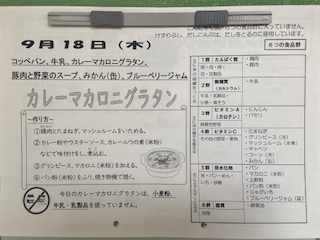 9月18日（木）
コッペパン、牛乳、カレーマカロニグラタン、
豚肉と野菜のスープ、みかん（缶）、ブルーベリージャム
カレーマカロニグラタン
～作り方～
①鶏肉とたまねぎ、マッシュルームをいためる。
②カレー粉やウスターソース、カレールウの素（米粉）
などで味付けをし、煮込む。
③グリンピース、マカロニ（米粉）を加える。
④パン粉（米粉）をふり、焼き物機で焼く。
今日のカレーマカロニグラタンは、小麦粉、
牛乳・乳製品を使っていません。
けずりぶし、だしこんぶは、だしをとるのに使用しています。
6つの食品群
1群
たんぱく質
・鶏肉
・豚肉
2群
無機質
（カルシウム）
・牛乳
3群
ビタミンA
（カロテン）
・にんじん
・パセリ
4群
ビタミンC
・たまねぎ
・グリンピース（冷）
・マッシュルーム（水煮）
・キャベツ
・コーン（冷）
・みかん（缶）
5群
炭水化物
・パン
・マカロニ（米粉）
・上新粉
・パン粉（米粉）
・じゃがいも
・ブルーベリージャム（袋）
6群
脂質